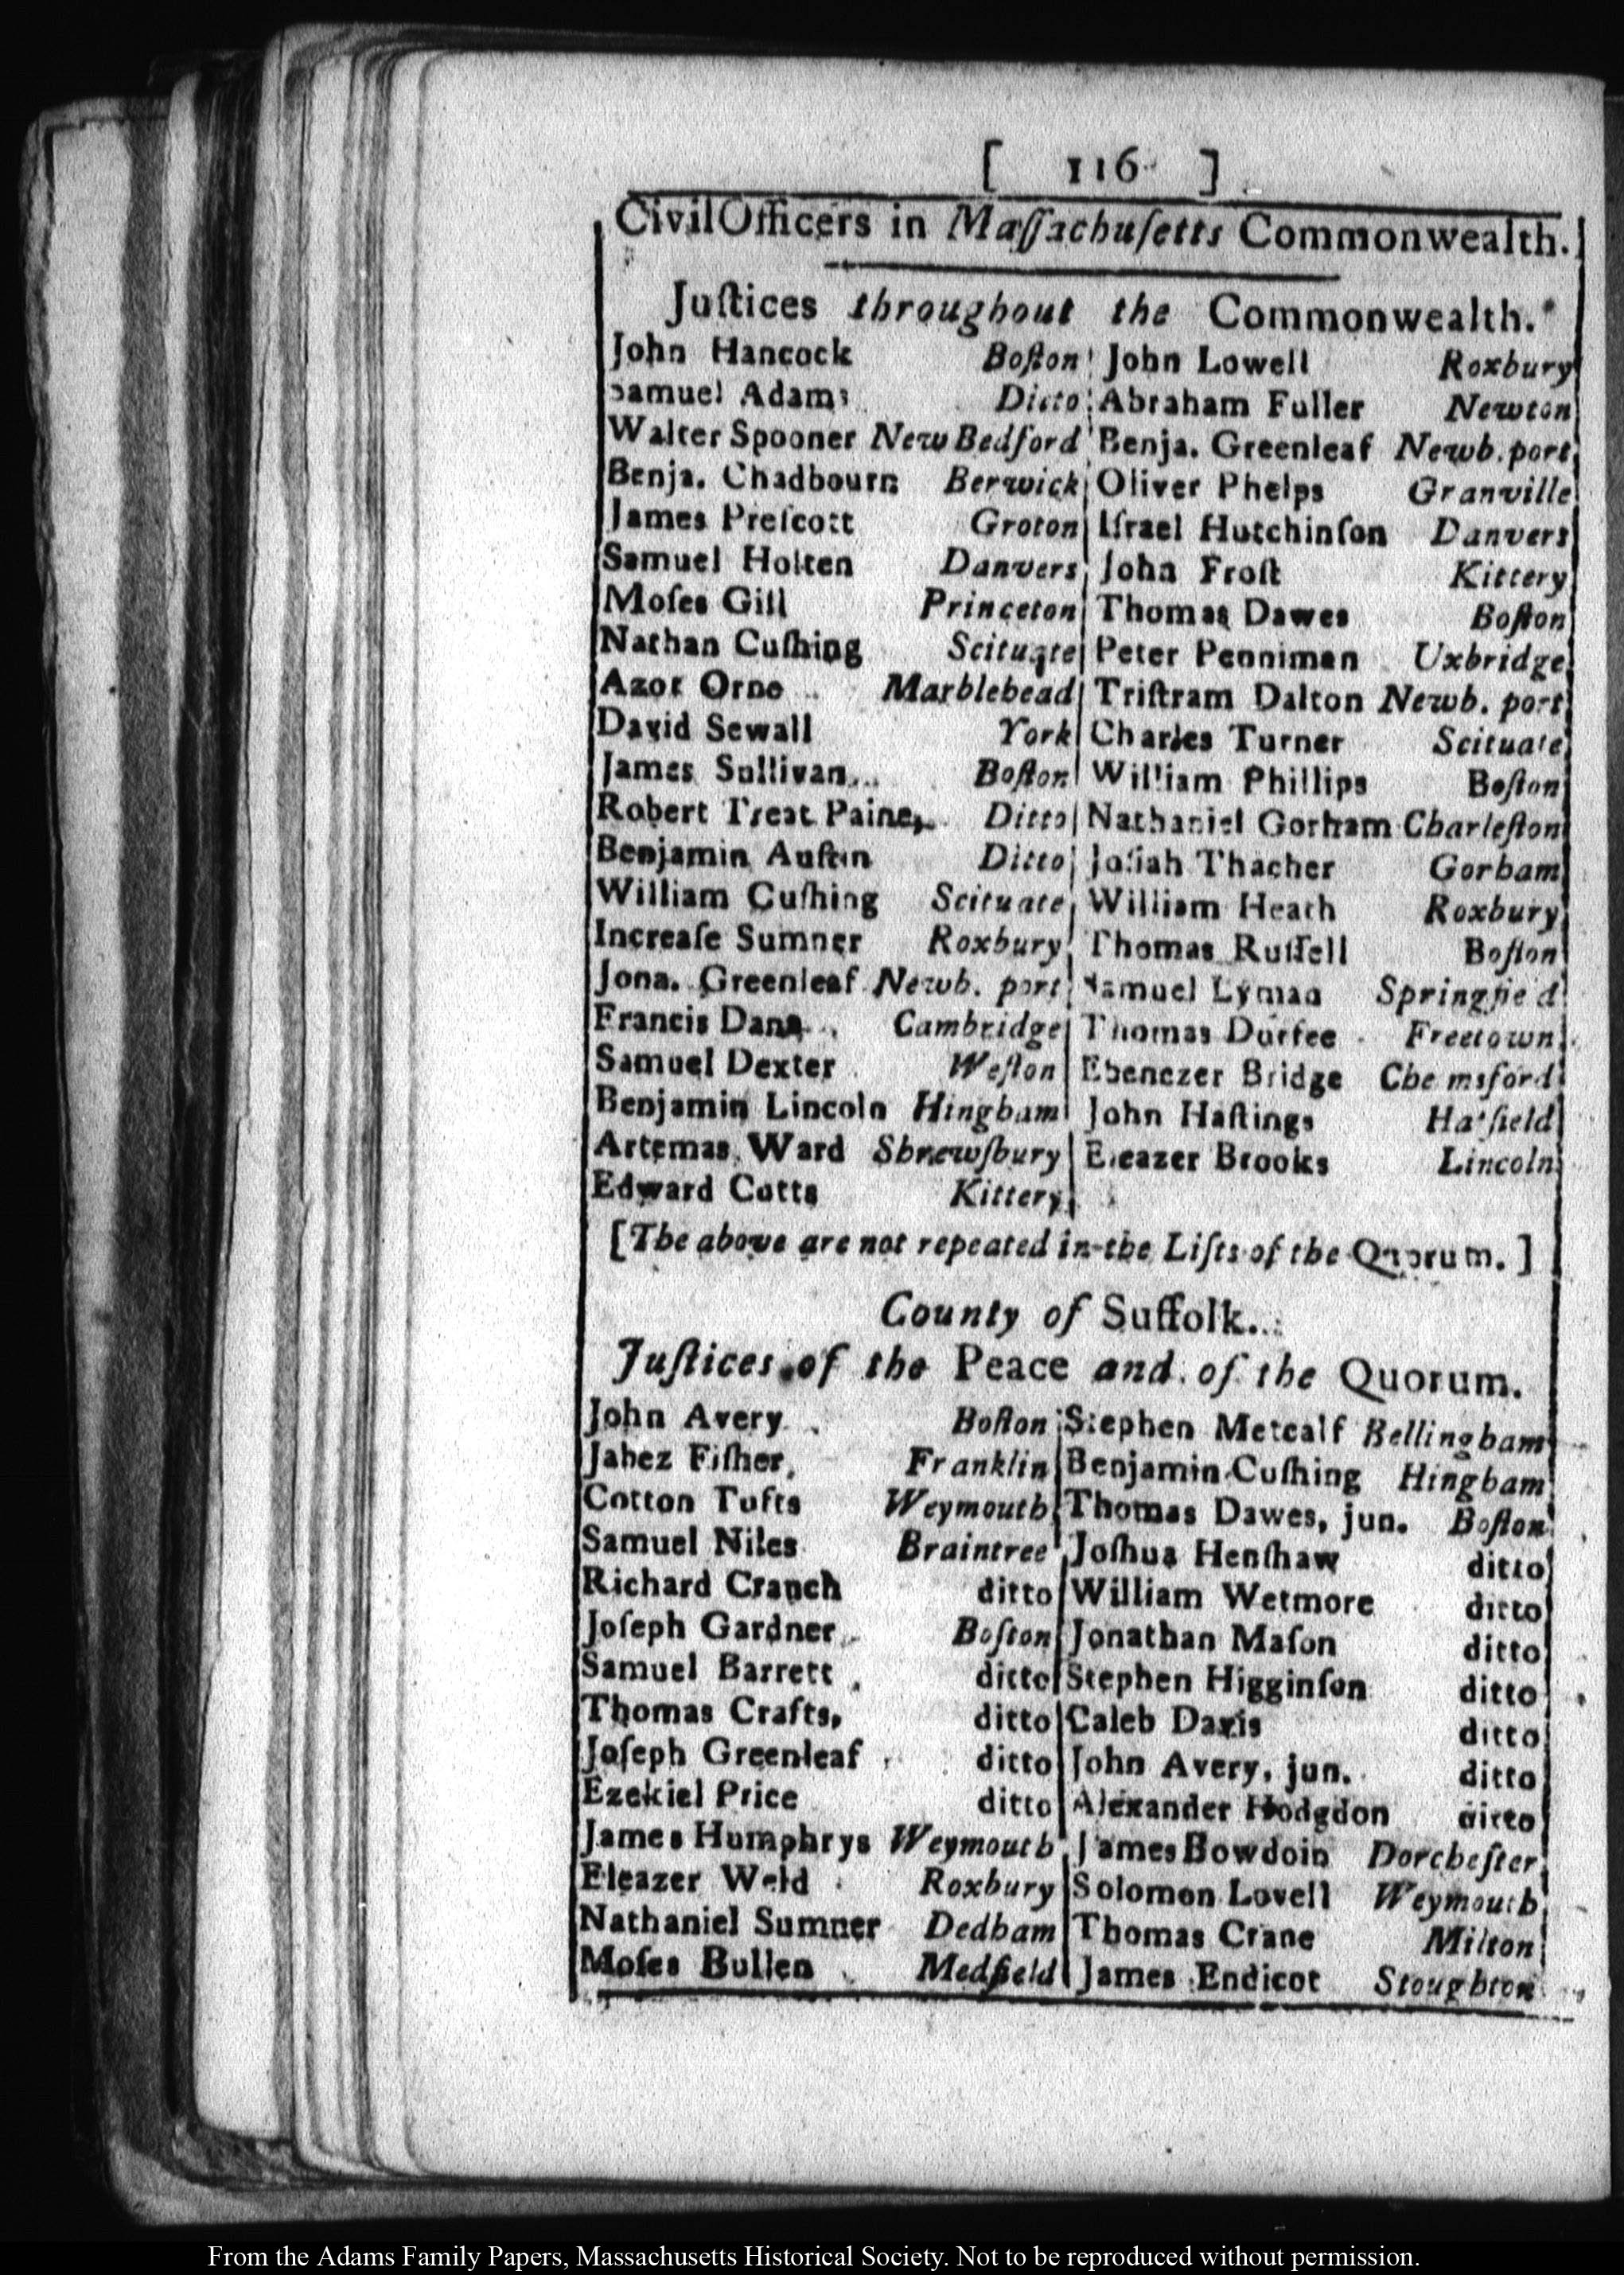 [ 116 ]
Civil Officers in Maſſachuſetts Commonwealth.
Juſtices throughout the Commonwealth.
John Hancock Boſton
Samuel Adams Ditto
Walter Spooner New Bedford
Benja. Chadbourn Berwick
James Preſcott Groton
Samuel Holten Danvers
Moſes Gill Princeton
Nathan Cuſhing Scituate
Azor Orne Marblehead
David Sewall York
James Sullivan Boſton
Robert Treat Paine, Ditto
Benjamin Auſtin Ditto
William Cuſhing Scituate
Increaſe Sumner Roxbury
Jona. Greenleaf Newb. port
Francis Dana Cambridge
Samuel Dexter Weſton
Benjamin Lincoln Hingham
Artemas Ward Shrewſbury
Edward Cutts Kittery
John Lowell Roxbury
Abraham Fuller Newton
Benja. Greenleaf Newb. port
Oliver Phelps Granville
Iſrael Hutchinſon Danvers
John Froſt Kittery
Thomas Dawes Boſton
Peter Penniman Uxbridge
Triſtram Dalton Newb. port
Charles Turner Scituate
William Phillips Boſton
Nathaniel Gorham Charleſton
Joſiah Thacher Gorham
William Heath Roxbury
Thomas Ruſſell Boſton
Samuel Lyman Springfield
Thomas Durfee Freetown
Ebenezer Bridge Chelmsford
John Haſtings Hatfield
Eleazer Brooks Lincoln
[The above are not repeated in the Liſts of the Quorum.]
County of Suffolk.
Juſtices of the Peace and of the Quorum.
John Avery Boſton
Jabez Fiſher, Franklin
Cotton Tufts Weymouth
Samuel Niles Braintree
Richard Cranch ditto
Joſeph Gardner Boſton
Samuel Barrett ditto
Thomas Crafts, ditto
Joſeph Greenleaf ditto
Ezekiel Price ditto
James Humphrys Weymouth
Eleazer Weld Roxbury
Nathaniel Sumner Dedham
Moſes Bullen Medfield
Stephen Metcalf Bellingham
Benjamin Cuſhing Hingham
Thomas Dawes, jun. Boſton
Joſhua Henſhaw ditto
William Wetmore ditto
Jonathan Maſon ditto
Stephen Higginſon ditto
Caleb Davis ditto
John Avery, jun. ditto
Alexander Hodgdon ditto
James Bowdoin Dorcheſter
Solomon Lovell Weymouth
Thomas Crane Milton
James Endicot Stoughton
From the Adams Family Papers, Massachusetts Historical Society. Not to be reproduced without permission.